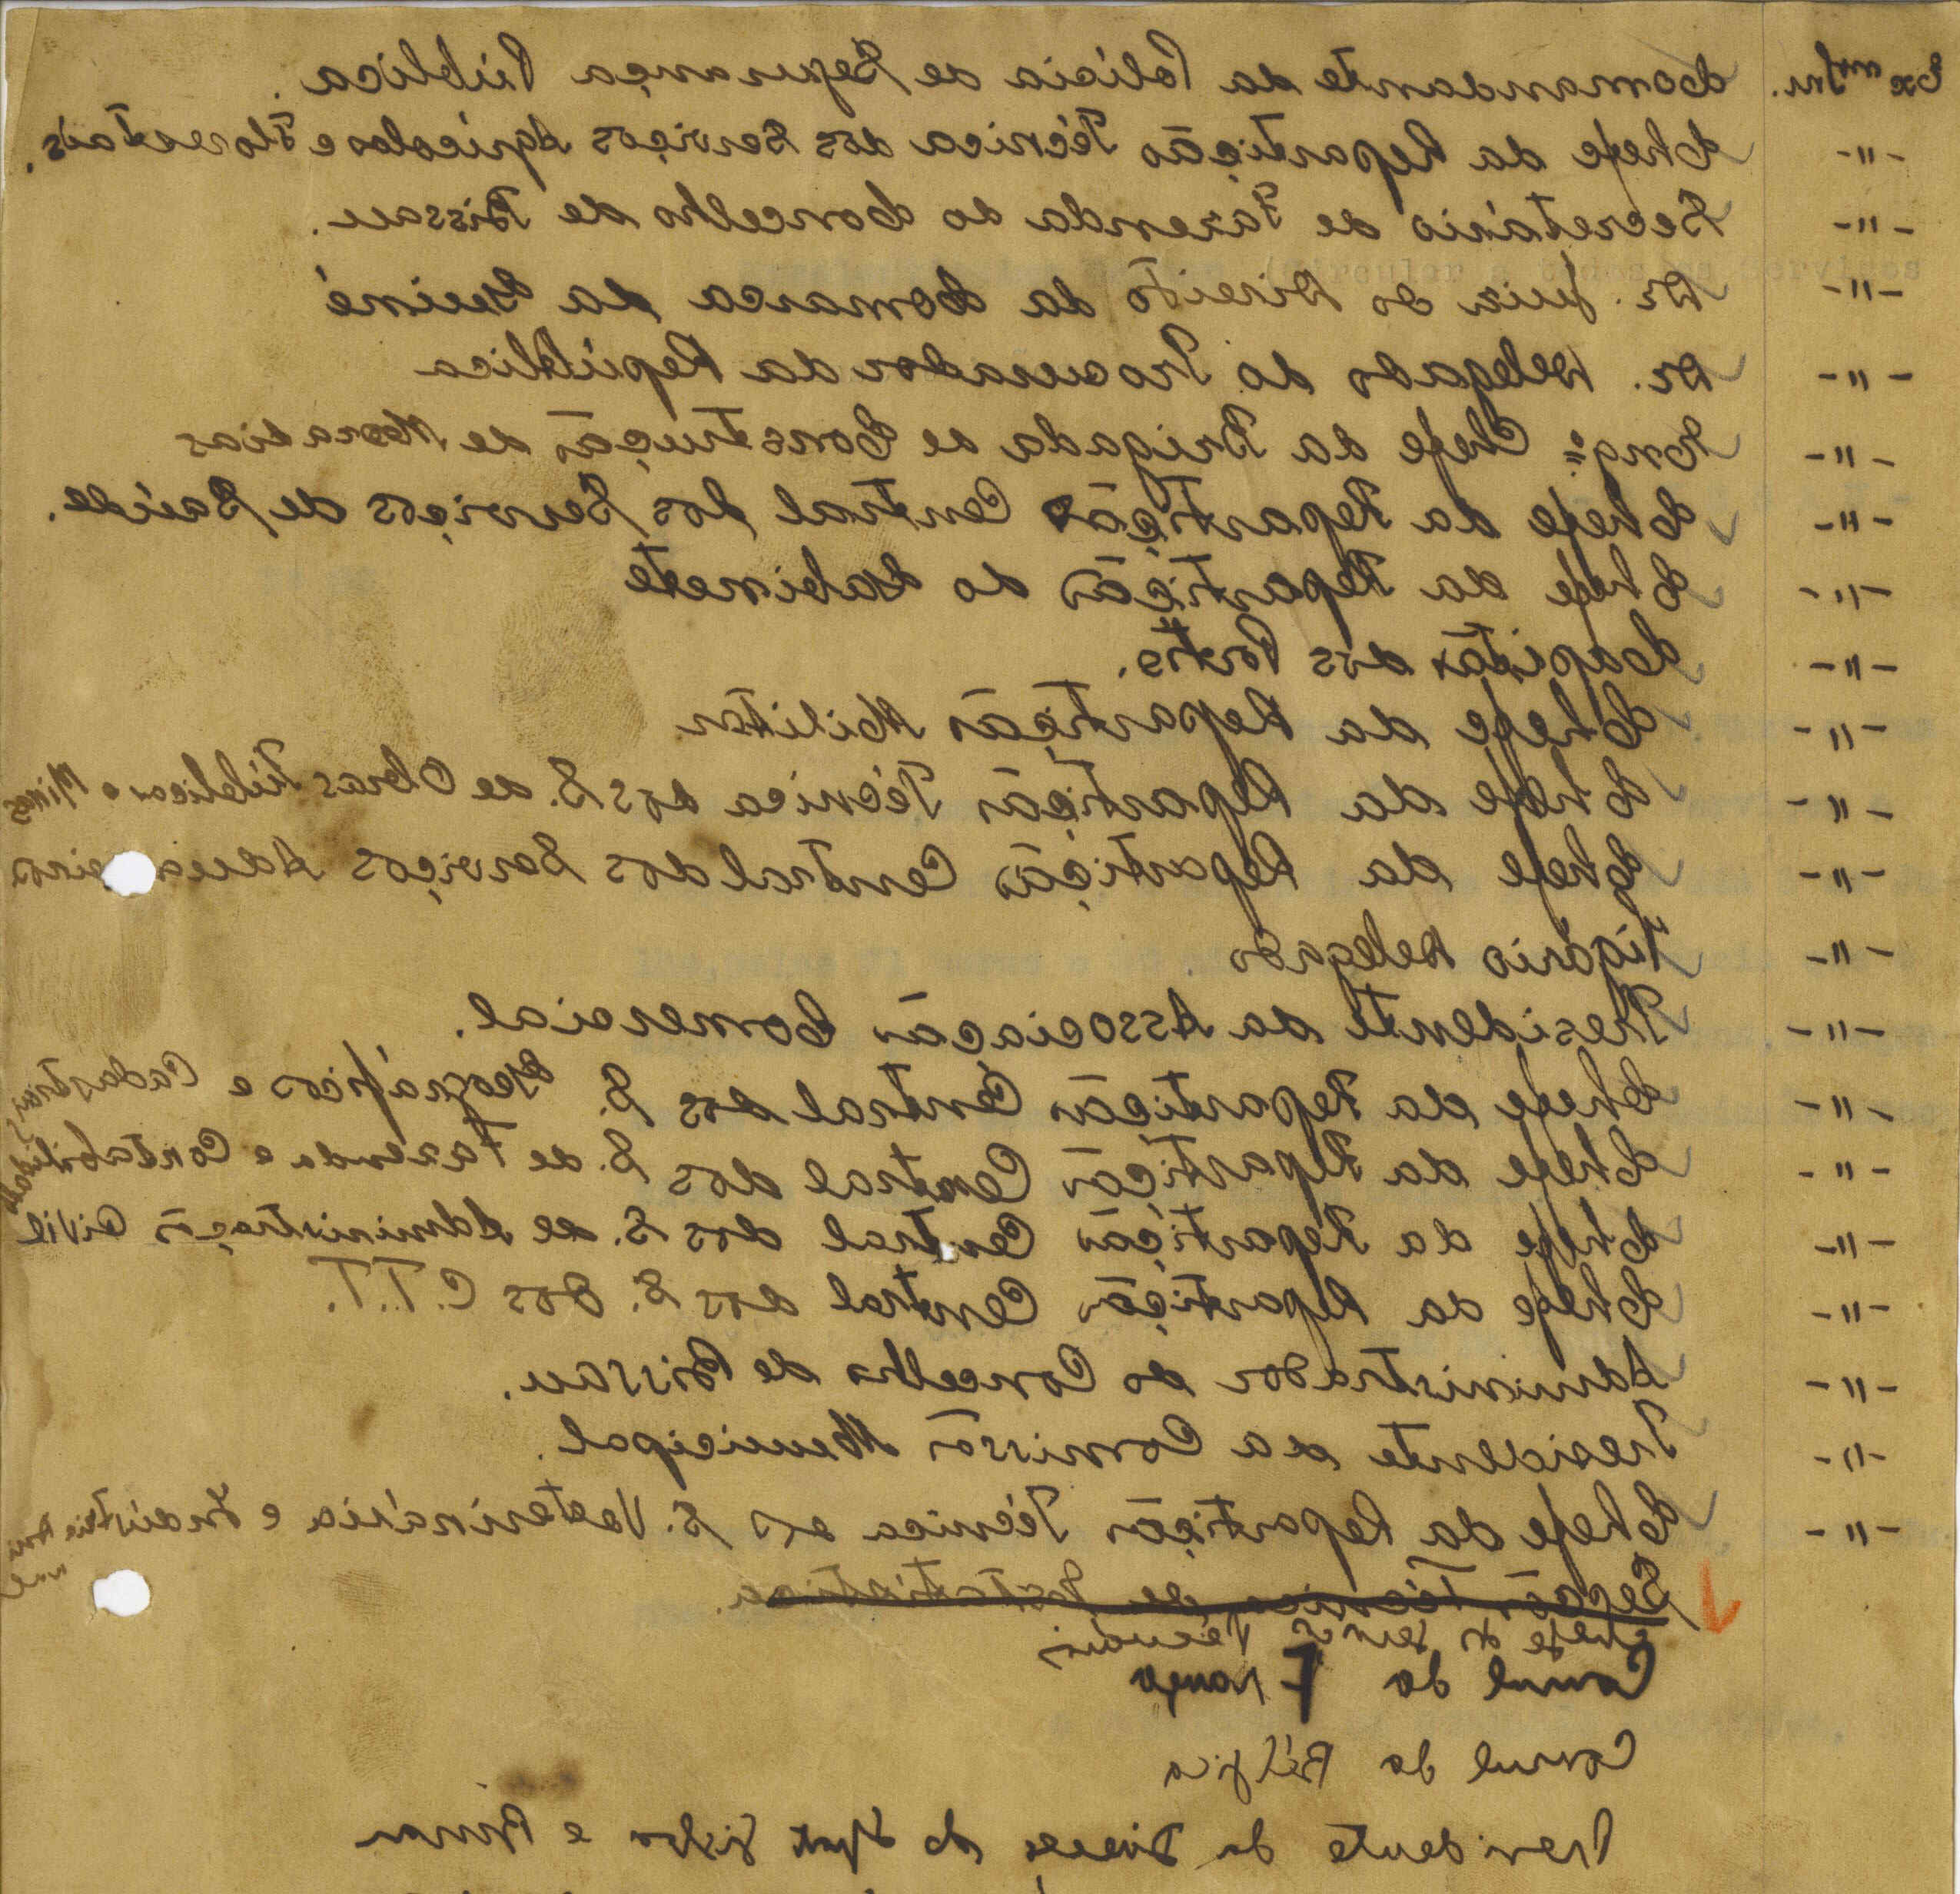 Exmo Snr. Comandante da Polícia de Segurança Pública.
-"- Chefe da Repartição Técnica dos Serviços Agrícolas e Florestais.
-"- Secretário de Fazenda do Concelho de Bissau.
-"- Dr. Juiz do Direito da Comarca da Guiné
-"- Dr. Delegado do Procurador da República
-"- Engº Chefe da Brigada de Construção de Moradias
-"- Chefe da Repartição Central dos Serviços de Saúde.
-"- Chefe da Repartição do Gabinete
-"- Capitão dos Portos.
-"- Chefe da Repartição Militar
-"- Chefe da Repartição Técnica dos S. de Obras Públicas e Minas
-"- Chefe da Repartição Central dos Serviços
-"- Vigário Delegado
-"- Presidente da Associação Comercial.
-"- Chefe da Repartição Central dos S. Geográficos e Cadastrais
-"- Chefe da Repartição Central dos S. de Fazenda e Contabilidade
-"- Chefe da Repartição Central dos S. de Administração Civil
-"- Chefe da Repartição Central dos S. dos C.T.T.
-"- Administrador do Concelho de Bissau.
-"- Presidente da Comissão Municipal.
-"- Chefe da Repartição Técnica dos S. Veterinária e Indústria
Secção Técnica de Estatística.
Chefe
Consul da França
Consul da Bélgica
Presidente da do Sport Lisboa e Bissau